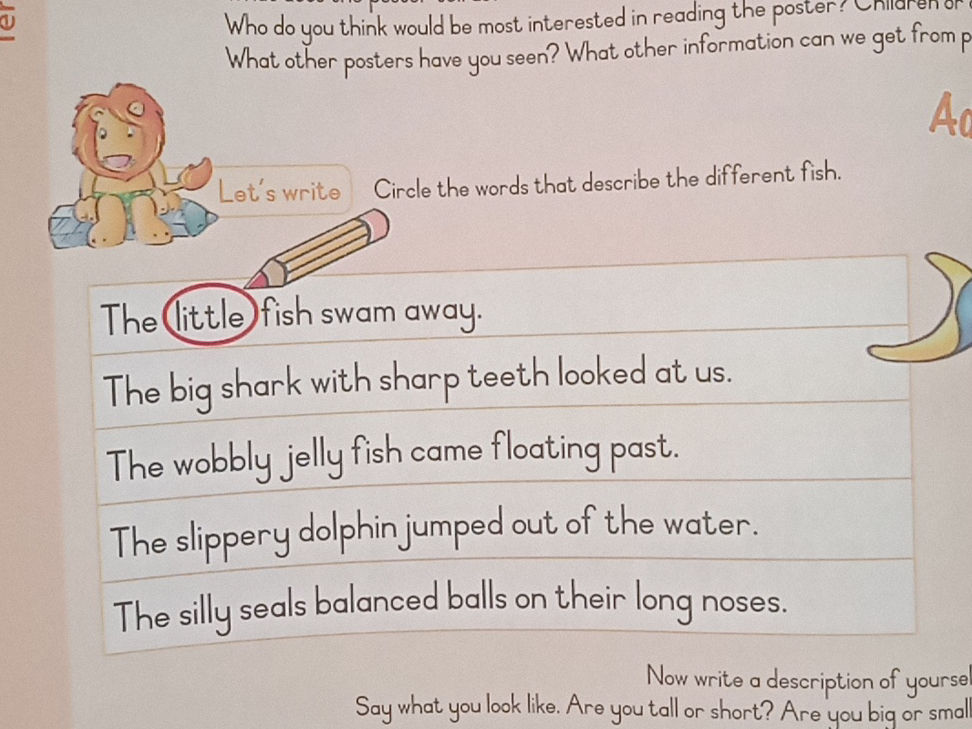 Who do you think would be most interested in reading the poster? Children or
What other posters have you seen? What other information can we get from
Let's write
Circle the words that describe the different fish.
The little fish swam away.
The big shark with sharp teeth looked at us.
The wobbly jelly fish came floating past.
The slippery dolphin jumped out of the water.
The silly seals balanced balls on their long noses.
Now write a description of
Say what you look like. Are you tall or short? Are you big or small